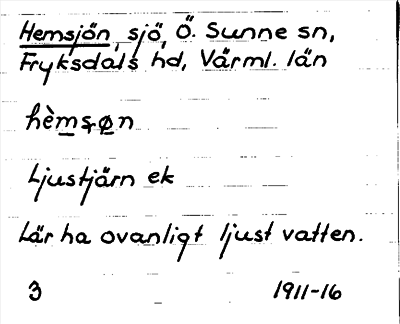 Hemsjön, sjö, Ö. Sunne sn,
Fryksdals hd, Värml. län
hèmsøn
Ljustjärn ek
Lär ha ovanligt ljust vatten.
3 1911-16